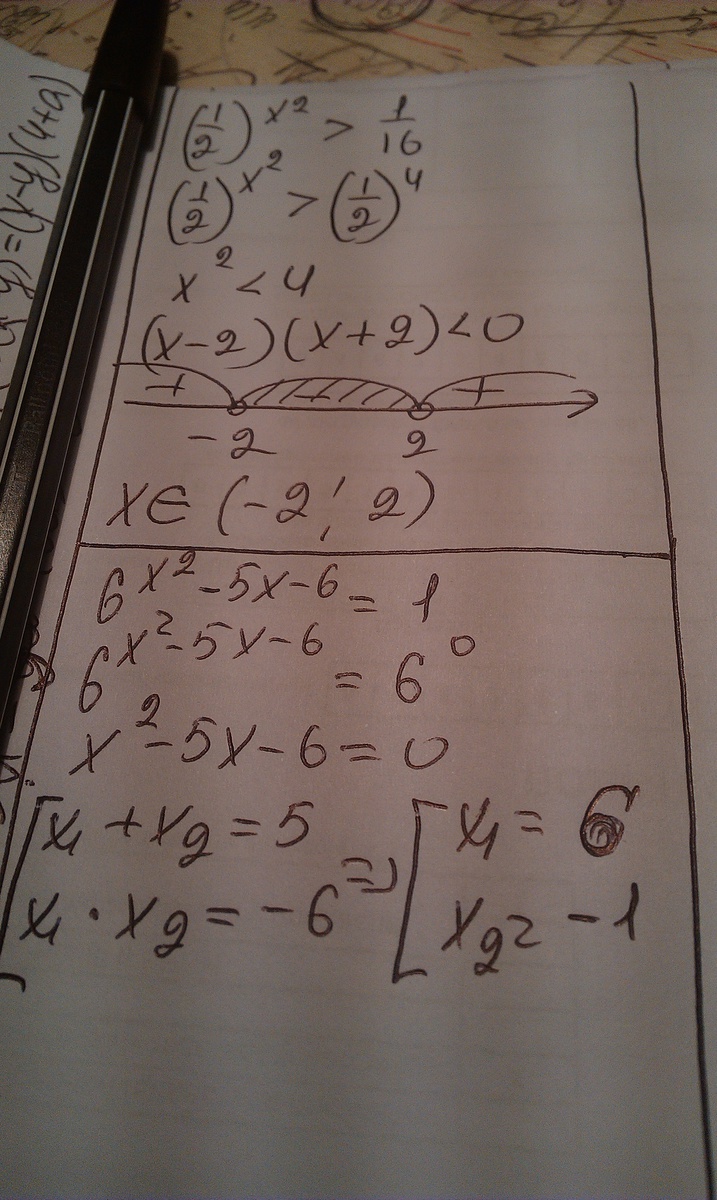 (1/2)^x² > 1/16
(1/2)^x² > (1/2)^4
x² < 4
(x-2)(x+2)<0
+ + +
-2 2
x∈(-2; 2)
6^(x²-5x-6) = 1
6^(x²-5x-6) = 6^0
x²-5x-6=0
[x₁+x₂=5
x₁·x₂=-6 => [x₁=6
x₂=-1
y)=(x-y)(4+a)